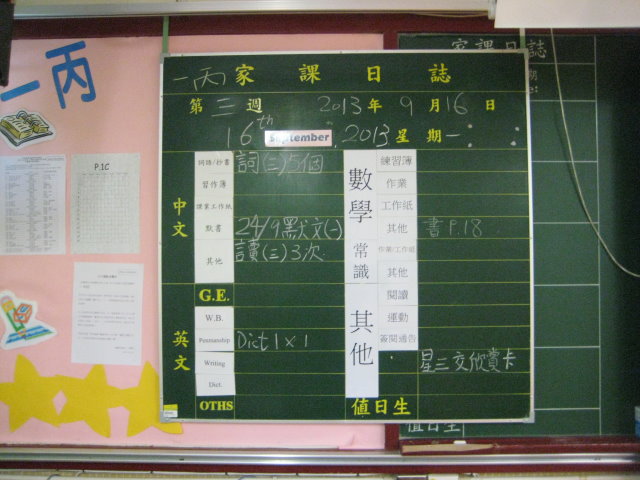 一丙
P.1C
一丙 家課日誌
第 三 週 2013 年 9 月 16 日
16th September, 2013 星期 一
中文
詞語/抄書 詞(三)5個
習作簿
課業工作紙
默書 24/9 默文(一)
其他 讀(三)3次
英文
G.E.
W.B.
Penmanship Dict 1 x 1
Writing
Dict.
OTHS
數學
練習簿
作業
工作紙
其他 書P.18
常識
作業/工作紙
其他
其他
閱讀
運動
簽閱通告
星三交欣賞卡
值日生
家課日誌
值日生